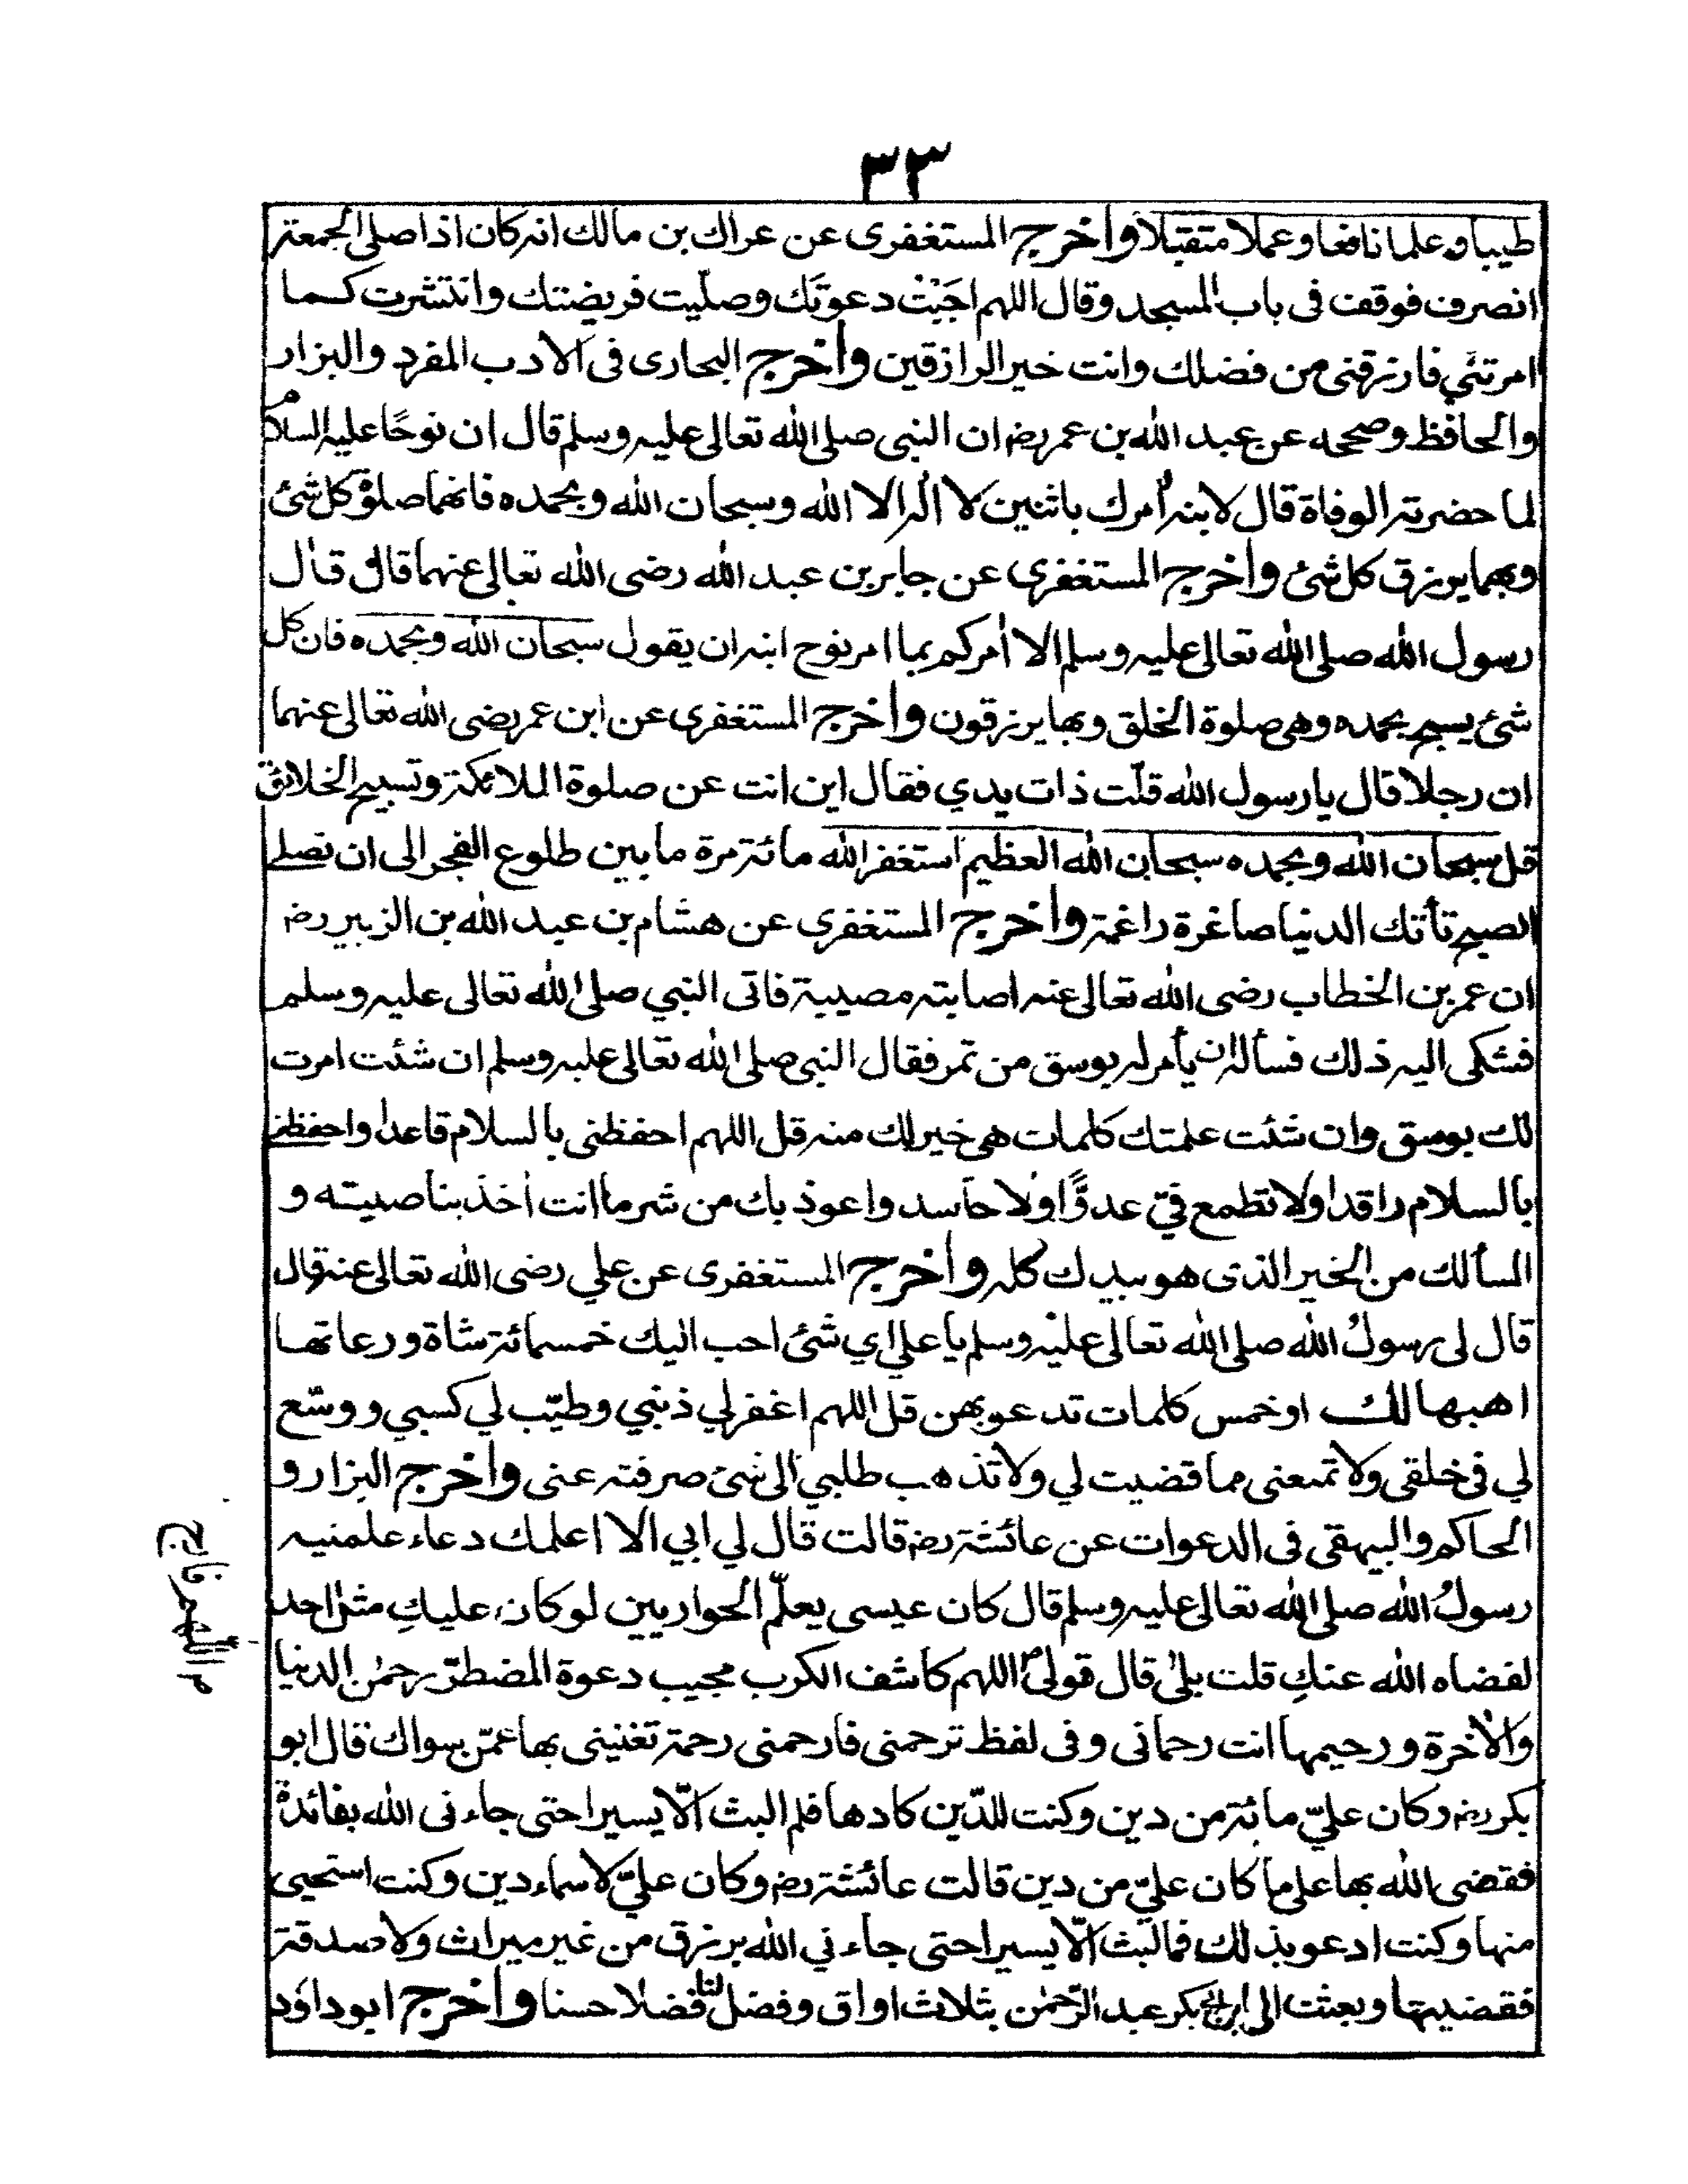 ٣٣
طيبا وعلما نافعا وعملا متقبلا واخرج المستغفرى عن عراك بن مالك انه كان اذا صلى الجمعة
انصرف فوقف فى باب المسجد وقال اللهم اجَبْتُ دعوتَك وصلّيت فريضتك وانتشرت كما
امرتني فارزقنى من فضلك وانت خير الرازقين واخرج البخارى فى الادب المفرد والبزار
والحافظ وصححه عن عبد الله بن عمر رضہ ان النبى صلى الله تعالى عليه وسلم قال ان نوحًا عليه السلام
لما حضرته الوفاة قال لابنه اٰمرك باثنين لا اله الا الله وسبحان الله وبحمده فانهما صلوة كل شئ
وبهما يرزق كل شئ واخرج المستغفرى عن جابر بن عبد الله رضى الله تعالى عنهما قال قال
رسول الله صلى الله تعالى عليه وسلم الا اٰمركم بما امر نوح ابنه ان يقول سبحان الله وبحمده فان كل
شئ يسبح بحمده وهى صلوة الخلق وبها يرزقون واخرج المستغفرى عن ابن عمر رضى الله تعالى عنهما
ان رجلا قال يا رسول الله قلّت ذات يدي فقال اين انت عن صلوة الملائكة وتسبيح الخلائق
قل سبحان الله وبحمده سبحان الله العظيم استغفر الله مائة مرة ما بين طلوع الفجر الى ان تصلے
الصبح تأتك الدنيا صاغرة راغمة واخرج المستغفرى عن هشام بن عبد الله بن الزبير رضہ
ان عمر بن الخطاب رضى الله تعالى عنه اصابته مصيبة فاتى النبي صلى الله تعالى عليه وسلم
فشكى اليه ذلك فسأله ان يأمر له بوسق من تمر فقال النبى صلى الله تعالى عليه وسلم ان شئت امرت
لك بوسق وان شئت علمتك كلمات هى خير لك منه قل اللهم احفظنى بالسلام قاعدا واحفظنے
بالسلام راقدا ولا تطمع فيّ عدوًّا ولا حاسد واعوذ بك من شر ما انت اٰخذ بناصيته و
اسألك من الخير الذى هو بيدك كله واخرج المستغفرى عن علي رضى الله تعالى عنه قال
قال لى رسولُ الله صلى الله تعالى عليه وسلم يا على اي شئ احب اليك خمسمائة شاة ورعاتها
اهبها لك او خمس كلمات تدعو بهن قل اللهم اغفر لي ذنبي وطيّب لي كسبي ووسّع
لي فى خلقى ولا تمنعنى مما قضيت لي ولا تذهب طلبي الى شئ صرفته عنى واخرج البزار و
الحاكم والبيهقى فى الدعوات عن عائشة رضہ قالت قال لي ابي الا اعلمك دعاء علمنيه
رسولُ الله صلى الله تعالى عليه وسلم قال كان عيسى يعلّم الحواريين لو كان عليكِ مثل احد
لقضاه الله عنكِ قلت بلىٰ قال قولى اللهم كاشف الكرب مجيب دعوة المضطرّ رحمٰن الدنيا
والاٰخرة ورحيمها انت رحمانى وفى لفظ ترحمنى فارحمنى رحمة تغنينى بها عمّن سواك قال ابو
بكر رضہ وكان عليّ مائة من دين وكنت للدّين كادها فلم البث الّا يسيرا حتى جاءنى الله بفائدة
فقضى الله بها على ما كان عليّ من دين قالت عائشة رضہ وكان عليّ لاسماء دين وكنت استحيى
منها وكنت ادعو بذلك فما لبث الّا يسيرا حتى جاءني الله برزق من غير ميراث ولا صدقة
فقضيتها وبعثت الى بكر عبد الرّحمٰن بثلاث اواق وفضل لنا فضلا حسنا واخرج ابو داؤد
م اللهم فارج